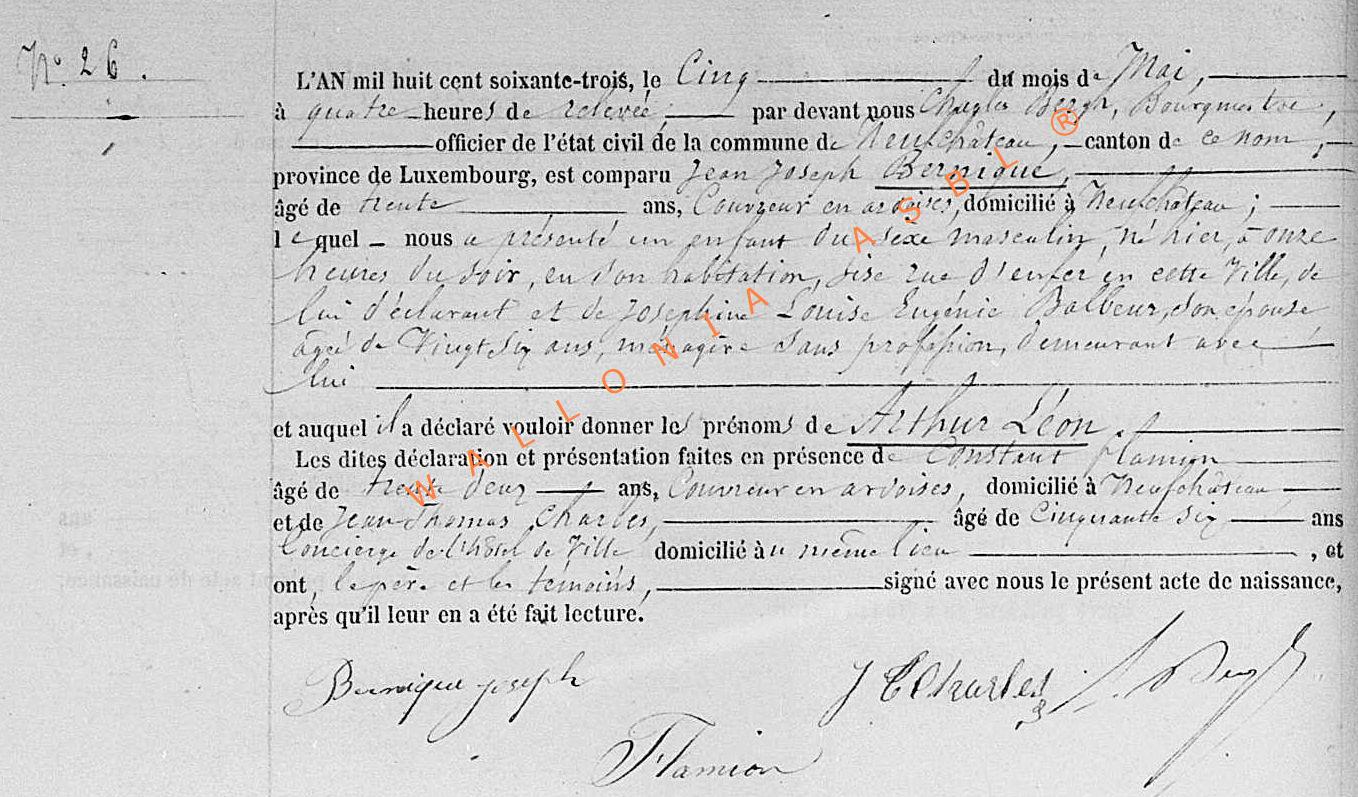 N° 26.
L'AN mil huit cent soixante-trois, le Cinq du mois de Mai,
à quatre heures de relevée, par devant nous Charles Bergh, Bourgmestre,
officier de l'état civil de la commune de Neufchâteau, canton de ce nom,
province de Luxembourg, est comparu Jean Joseph Bernique,
âgé de trente ans, Couvreur en ardoises, domicilié à Neufchâteau;
lequel nous a présenté un enfant du sexe masculin, né hier, à onze
heures du soir, en son habitation, sise rue d'enfer en cette Ville, de
lui déclarant et de Josephine Louise Eugénie Balbeur, son épouse
âgée de Vingt six ans, ménagère sans profession, demeurant avec
lui
et auquel il a déclaré vouloir donner les prénoms de Arthur Léon.
Les dites déclaration et présentation faites en présence de Constant Flamion
âgé de trente deux ans, Couvreur en ardoises, domicilié à Neufchâteau
et de Jean Thomas Charles, âgé de Cinquante six ans
Concierge de l'hôtel de Ville domicilié au même lieu, et
ont, le père et les témoins, signé avec nous le présent acte de naissance,
après qu'il leur en a été fait lecture.
Bernique joseph
J T Charles
Flamion
WALLONIA ASBL ®